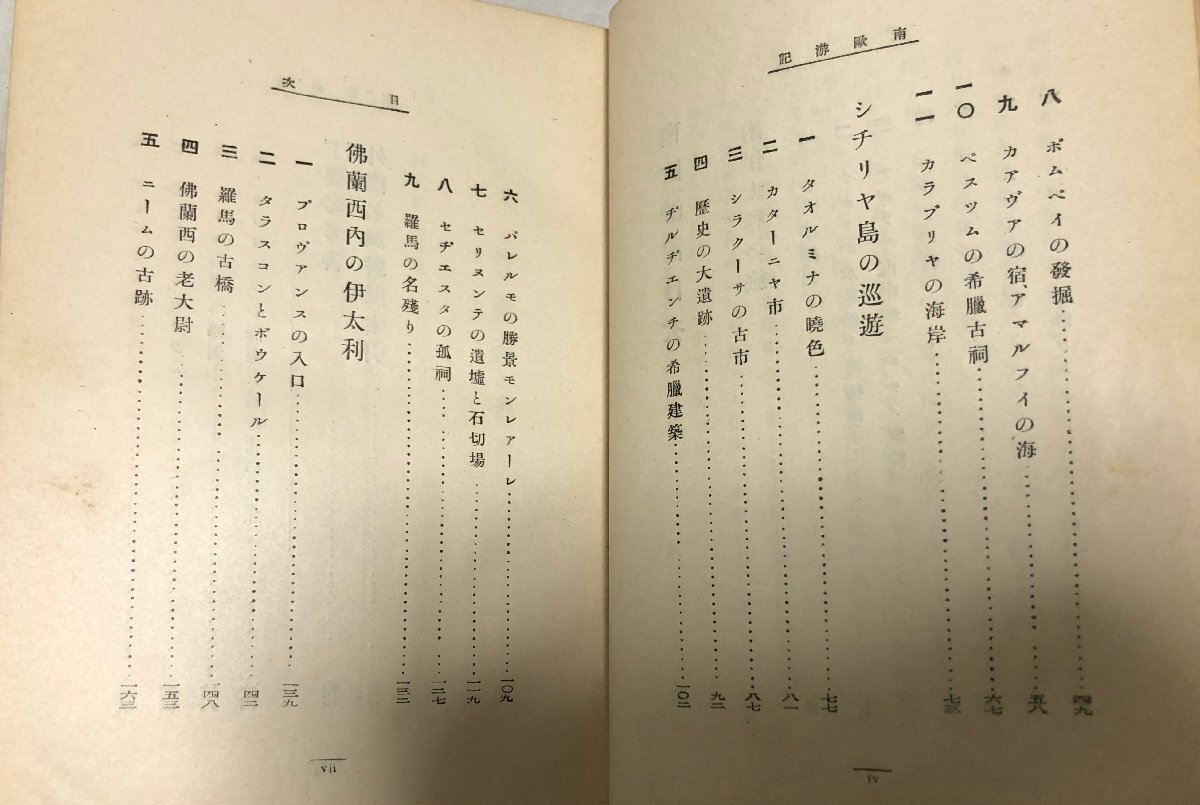 南歐游記
八 ポムペイの發掘……四九
九 カアヴアの宿、アマルフイの海……五八
一〇 ペスツムの希臘古祠……六七
一一 カラブリヤの海岸……七三
シチリヤ島の巡遊
一 タオルミナの曉色……七七
二 カターニヤ市……八一
三 シラクーサの古市……八七
四 歷史の大遺跡……九二
五 ヂルヂエンチの希臘建築……一〇二
iv
目次
六 パレルモの勝景モンレアーレ……一〇九
七 セリヌンテの遺墟と石切場……一一九
八 セヂエスタの孤祠……一二七
九 羅馬の名殘り……一三三
佛蘭西內の伊太利
一 プロヴアンスの入口……一三九
二 タラスコンとボウケール……一四二
三 羅馬の古橋……一四八
四 佛蘭西の老大尉……一五三
五 ニームの古跡……一六三
vii